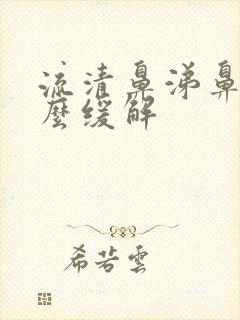 流清鼻涕鼻
麼缓解
希若雲